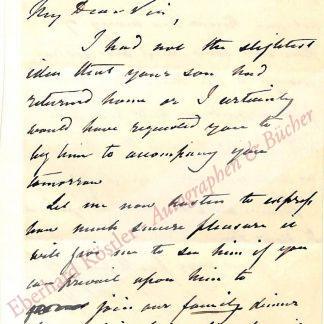 My Dear Sir,
I had not the slightest
idea that your son had
returned home or I certainly
would have requested you to
beg him to accompany you
tomorrow
Let me now hasten to express
how much sincere pleasure it
will give me to see him if you
can prevail upon him to
join our family dinner
Eberhard Köstler Autographen & Bücher